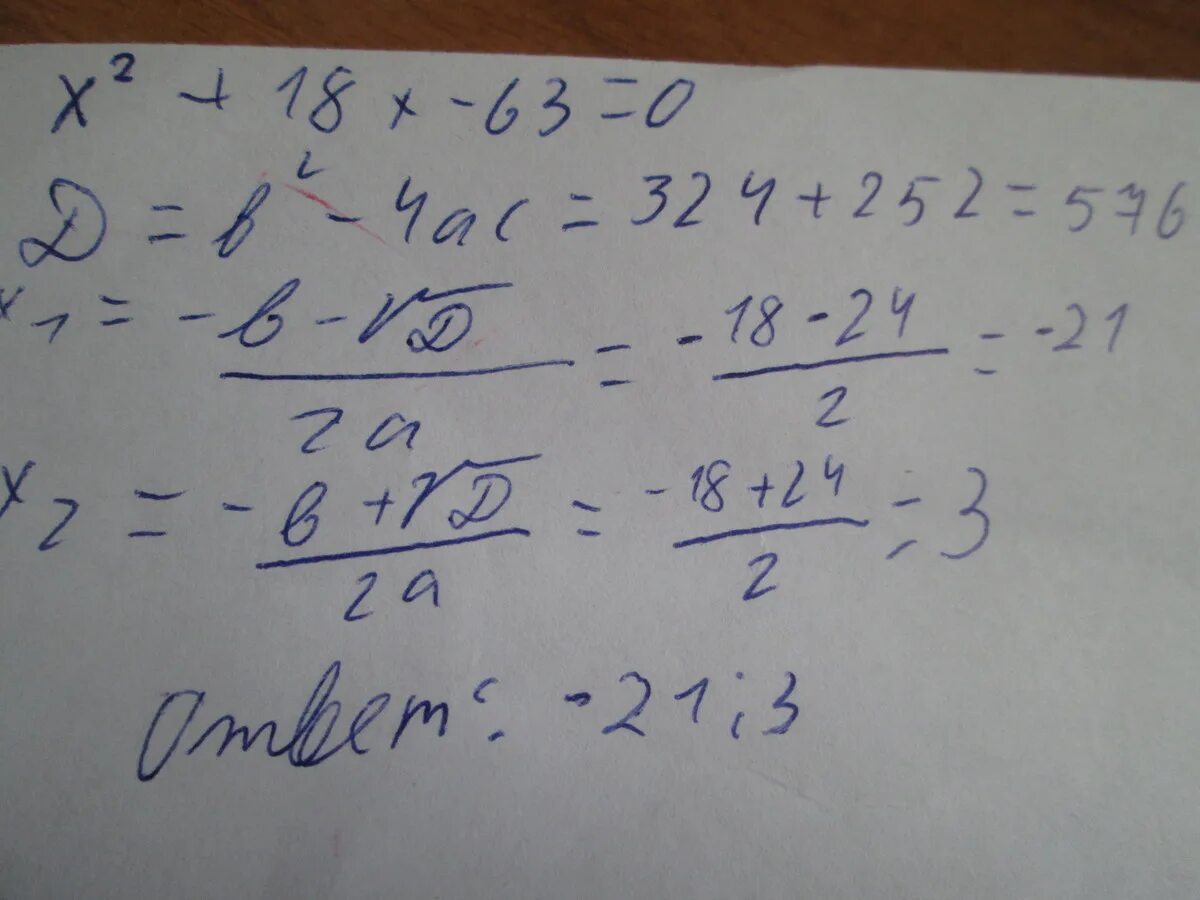 x² + 18x - 63 = 0
D = b² - 4ac = 324 + 252 = 576
x₁ = (-b - √D)/(2a) = (-18 - 24)/2 = -21
x₂ = (-b + √D)/(2a) = (-18 + 24)/2 = 3
Ответ: -21; 3